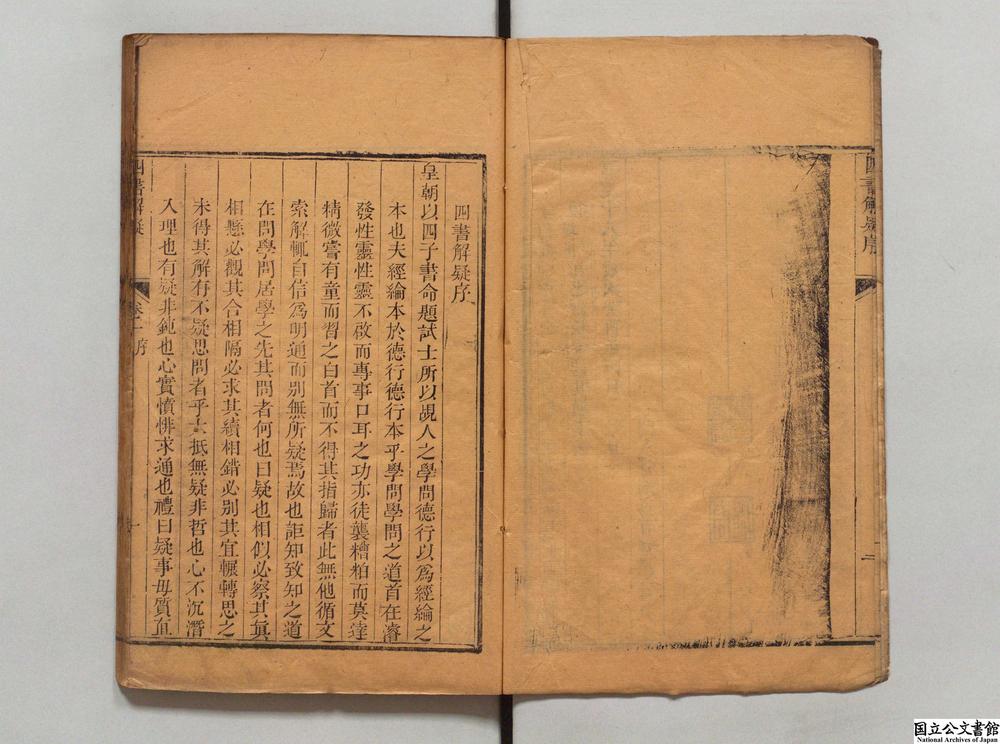 四書解疑序
二
四書解疑序
皇朝以四子書命題試士所以覘人之學問德行以為經綸之
本也夫經綸本於德行德行本乎學問學問之道首在睿
發性靈性靈不啟而專事口耳之功亦徒襲糟粕而莫達
精微嘗有童而習之白首而不得其指歸者此無他循文
索解輒自信為明通而別無所疑焉故也詎知致知之道
在問學問居學之先其問者何也曰疑也相似必察其真
相懸必觀其合相隔必求其續相錯必別其宜輾轉思之
未得其解有不疑思問者乎士抵無疑非哲也心不沉潛
入理也有疑非鈍也心實憤悱求通也禮曰疑事毋質直
四書解疑
卷一序
一
国立公文書館
National Archives of Japan